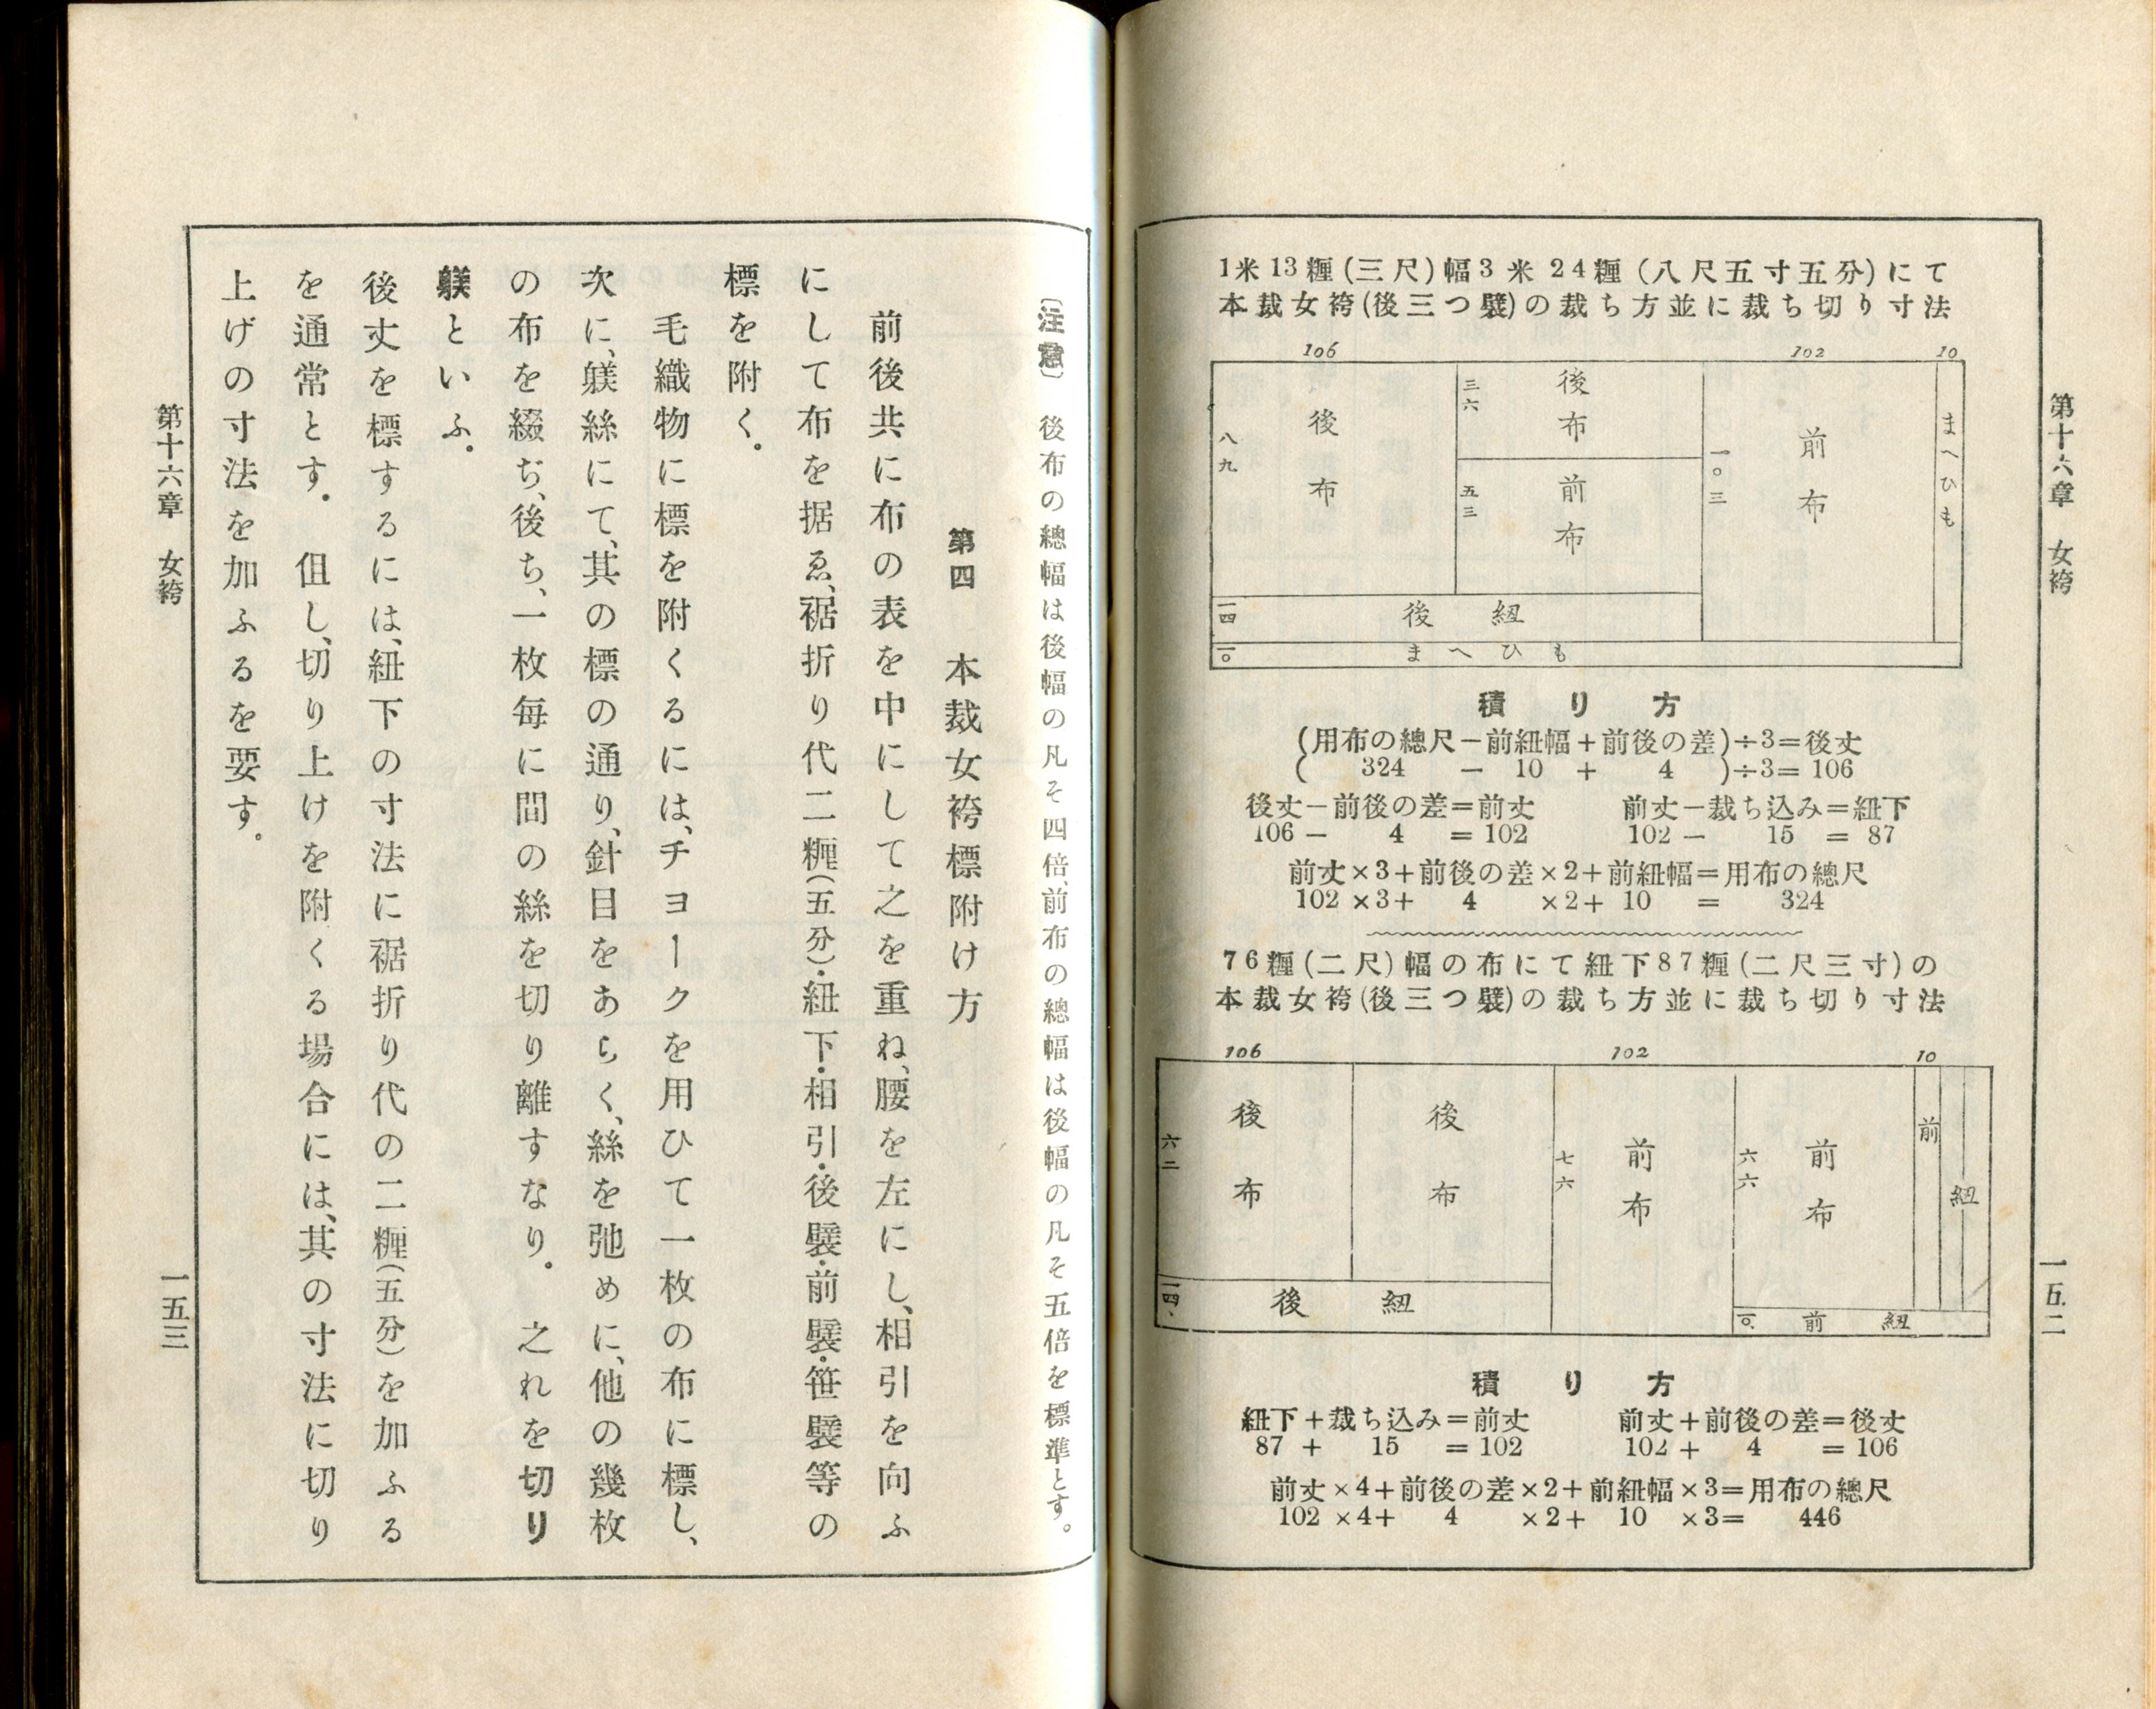 第十六章　女袴
一五二
1米13糎(三尺)幅3米24糎(八尺五寸五分)にて
本裁女袴(後三つ襞)の裁ち方並に裁ち切り寸法
106
102
10
後布
八九
三六
後布
五三
前布
一〇三
前布
まへひも
一四
後紐
一〇
まへひも
積り方
(用布の總尺−前紐幅+前後の差)÷3=後丈
( 324 − 10 + 4 )÷3= 106
後丈−前後の差=前丈　前丈−裁ち込み=紐下
106 − 4 = 102　102 − 15 = 87
前丈×3+前後の差×2+前紐幅=用布の總尺
102 ×3+ 4 ×2+ 10 = 324
76糎(二尺)幅の布にて紐下87糎(二尺三寸)の
本裁女袴(後三つ襞)の裁ち方並に裁ち切り寸法
106
102
10
六二
後布
後布
七六
前布
六六
前布
前
紐
一四
後紐
一〇
前紐
積り方
紐下+裁ち込み=前丈　前丈+前後の差=後丈
87 + 15 = 102　102 + 4 = 106
前丈×4+前後の差×2+前紐幅×3=用布の總尺
102 ×4+ 4 ×2+ 10 ×3= 446
〔注意〕　後布の總幅は後幅の凡そ四倍、前布の總幅は後幅の凡そ五倍を標準とす。
第四　本裁女袴標附け方
前後共に布の表を中にして之を重ね、腰を左にし、相引を向ふ
にして布を据ゑ、裾折り代二糎(五分)・紐下・相引・後襞・前襞・笹襞等の
標を附く。
毛織物に標を附くるには、チヨークを用ひて一枚の布に標し、
次に、躾絲にて、其の標の通り、針目をあらく、絲を弛めに、他の幾枚
の布を綴ぢ、後ち、一枚每に間の絲を切り離すなり。　之れを切り
躾といふ。
後丈を標するには、紐下の寸法に裾折り代の二糎(五分)を加ふる
を通常とす。　但し、切り上けを附くる場合には、其の寸法に切り
上げの寸法を加ふるを要す。
第十六章　女袴
一五三